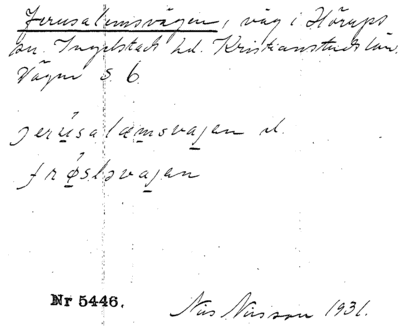 Jerusalemsvägen, väg i Hörups
sn. Ingelstads hd. Kristianstads län.
Vägen s. 6.
jerusalæmsvagen el.
frøsləvagen
Nr 5446.
Nils Nilsson 1931.